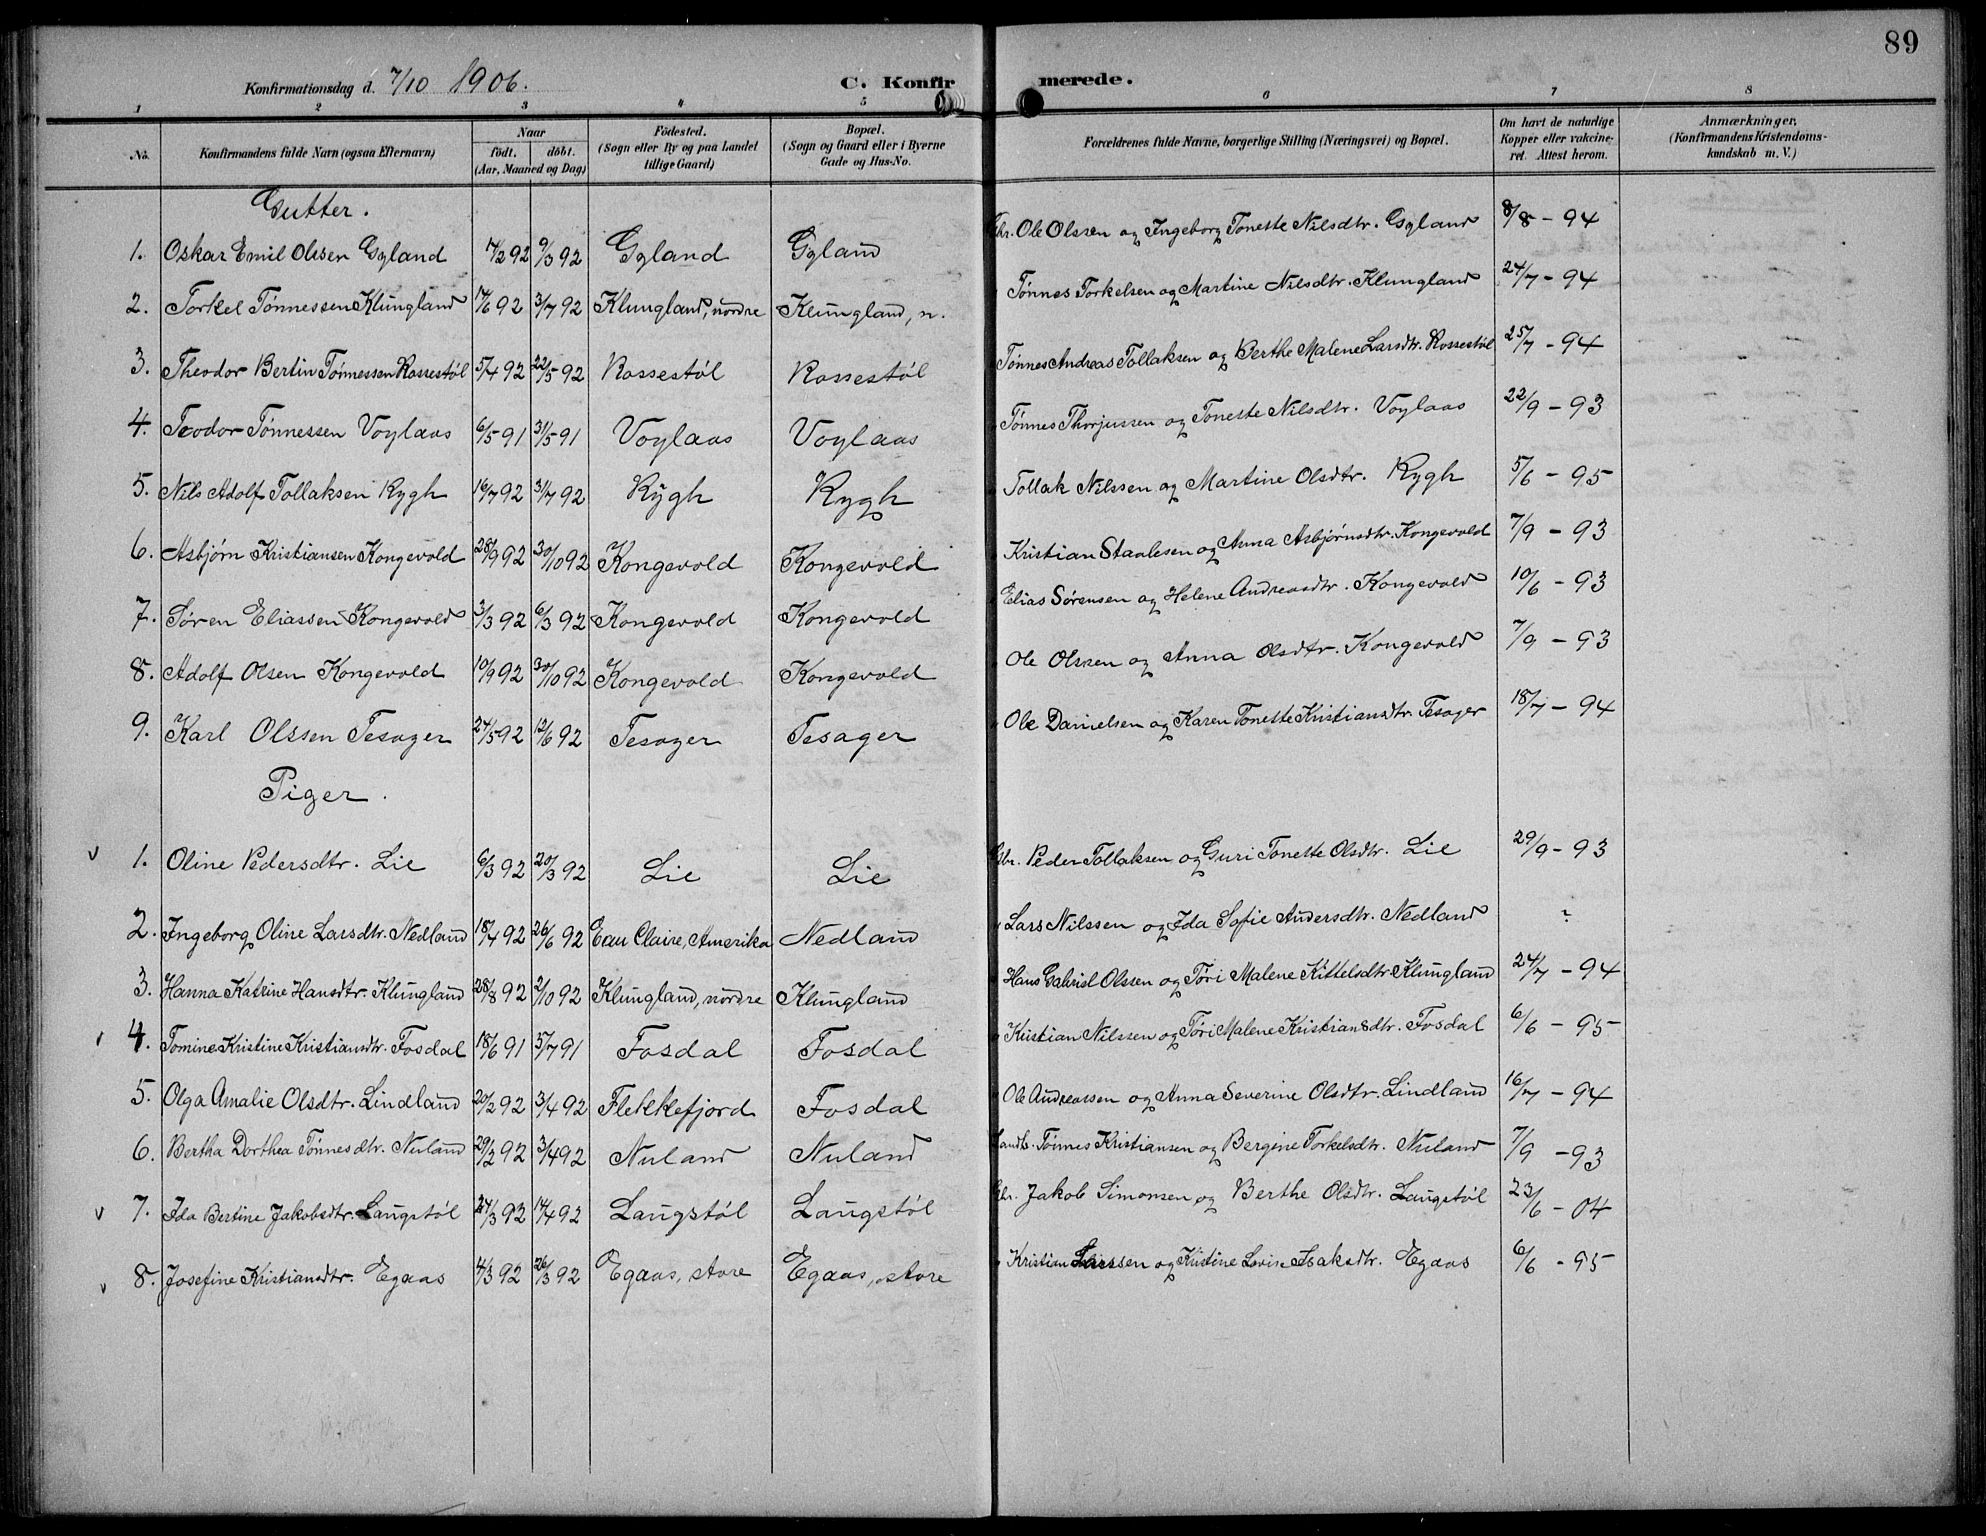 89
Konfirmationsdag d. 7/10 1906. C. Konfirmerede.
1 2 3 4 5 6 7 8
No. Konfirmandens fulde Navn (ogsaa Efternavn) Naar födt. döbt. (Aar, Maaned og Dag) Födested. (Sogn eller By og paa Landet tillige Gaard) Bopæl. (Sogn og Gaard eller i Byerne Gade og Hus-No. Forældrenes fulde Navne, borgerlige Stilling (Næringsvei) og Bopæl. Om havt de naturlige Kopper eller vakcineret. Attest herom. Anmærkninger, (Konfirmandens Kristendomskundskab m. V.)
Gutter.
1. Oskar Emil Olssen Gyland 17/2 92 9/3 92 Gyland Gyland Gbr. Ole Olssen og Ingeborg Tonette Nilsdtr. Gyland 8/8 - 94
2. Torkel Tønnessen Klungland 17/6 92 3/7 92 Klungland, nordre Klungland, n. " Tønnes Torkelsen og Martine Nilsdtr. Klungland 24/7 - 94
3. Theodor Bertin Tønnessen Rossestøl 5/4 92 22/5 92 Rossestøl Rossestøl " Tønnes Andreas Tollaksen og Berthe Malene Larsdtr. Rossestøl 25/7 - 94
4. Teodor Tønnessen Voylaas 6/5 91 31/5 91 Voylaas Voylaas " Tønnes Thorjussen og Tonette Nilsdtr. Voylaas 22/9 - 93
5. Nils Adolf Tollaksen Rygh 16/7 92 31/7 92 Rygh Rygh " Tollak Nilssen og Martine Olsdtr. Rygh 5/6 - 95
6. Asbjørn Kristiansen Kongevold 28/9 92 30/10 92 Kongevold Kongevold " Kristian Staalesen og Anna Asbjørnsdtr. Kongevold 7/9 - 93
7. Søren Eliassen Kongevold 3/3 92 6/3 92 Kongevold Kongevold " Elias Sørensen og Helene Andreasdtr. Kongevold 10/6 - 93
8. Adolf Olsen Kongevold 10/9 92 30/10 92 Kongevold Kongevold " Ole Olssen og Anna Olsdtr. Kongevold 7/9 - 93
9. Karl Olssen Tesager 24/5 92 12/6 92 Tesager Tesager " Ole Danielsen og Karen Tonette Kristiansdtr. Tesager 18/7 - 94
Piger.
v 1. Oline Pedersdtr. Lie 6/3 92 20/3 92 Lie Lie Gbr. Peder Tollaksen og Guri Tonette Olsdtr. Lie 29/9 - 93
2. Ingeborg Oline Larsdtr. Nedland 18/4 92 26/6 92 Eau Claire, Amerika Nedland " Lars Nilssen og Ida Sofie Andersdtr. Nedland ?
3. Hanna Katrine Hansdtr. Klungland 28/8 92 2/10 92 Klungland, nordre Klungland " Hans Gabriel Olssen og Tøri Malene Kittelsdtr. Klungland 24/7 - 94
4. Tomine Kristine Kristiansdtr. Fosdal 18/6 91 5/7 91 Fosdal Fosdal " Kristian Nilssen og Tøri Malene Kristiansdtr. Fosdal 6/6 - 95
5. Olga Amalie Olsdtr. Lindland 20/2 92 3/4 92 Flekkefjord Fosdal " Ole Andreassen og Anna Severine Olsdtr. Lindland 16/7 - 94
6. Bertha Dorthea Tønnesdtr. Nuland 29/2 92 3/4 92 Nuland Nuland Landb. Tønnes Kristiansen og Bergine Torkelsdtr. Nuland 7/9 - 93
v 7. Ida Bertine Jakobsdtr. Langstøl 24/3 92 14/4 92 Langstøl Langstøl Gbr. Jakob Simonsen og Berthe Olsdtr. Langstøl 23/6 - 04
v 8. Josefine Kristiansdtr. Egaas 4/3 92 26/3 92 Egaas, store Egaas, store " Kristian Larssen og Kistine Lovise Isaksdtr. Egaas 6/6 - 95